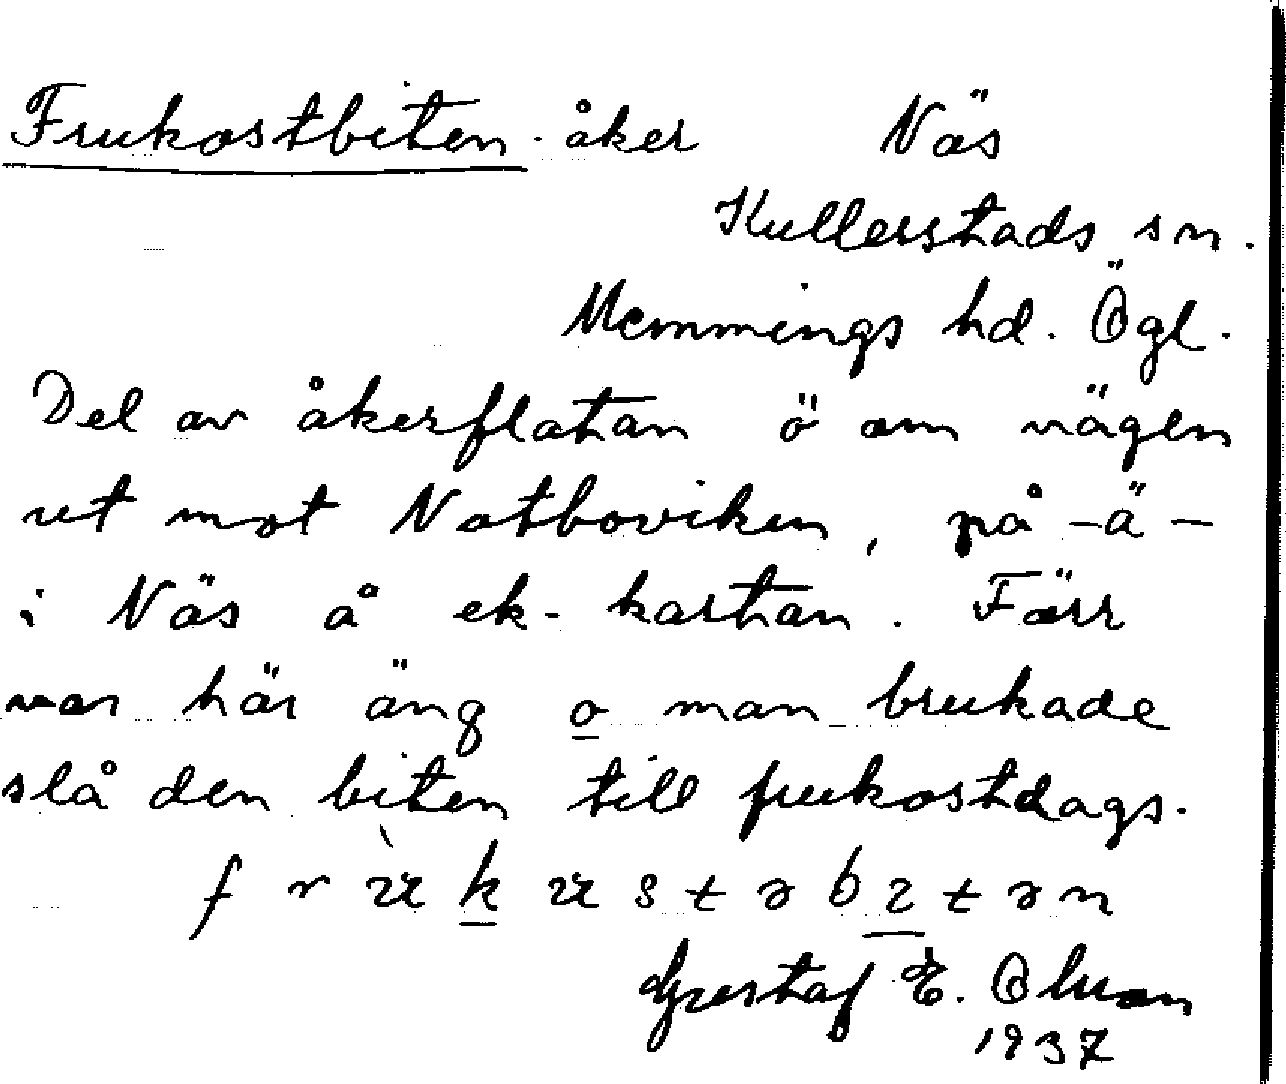 Frukostbiten - åker Näs
Kullerstads sn.
Memmings hd. Ögl.
Del av åkerflatan ö om vägen
ut mot Notboviken, på - ä -
i Näs å ek-kartan. Förr
var här äng o man brukade
slå den biten till frukostdags.
Gustaf E.
1937